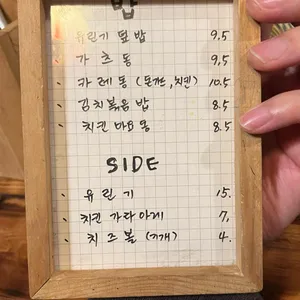 밥
· 유린기 덮밥 9.5
· 가츠동 9.5
· 카레동 (돈까스, 치킨) 10.5
· 김치볶음밥 8.5
· 치킨 마요동 8.5
SIDE
· 유린기 15.
· 치킨 가라아게 7.
· 치즈볼 (7개) 4.